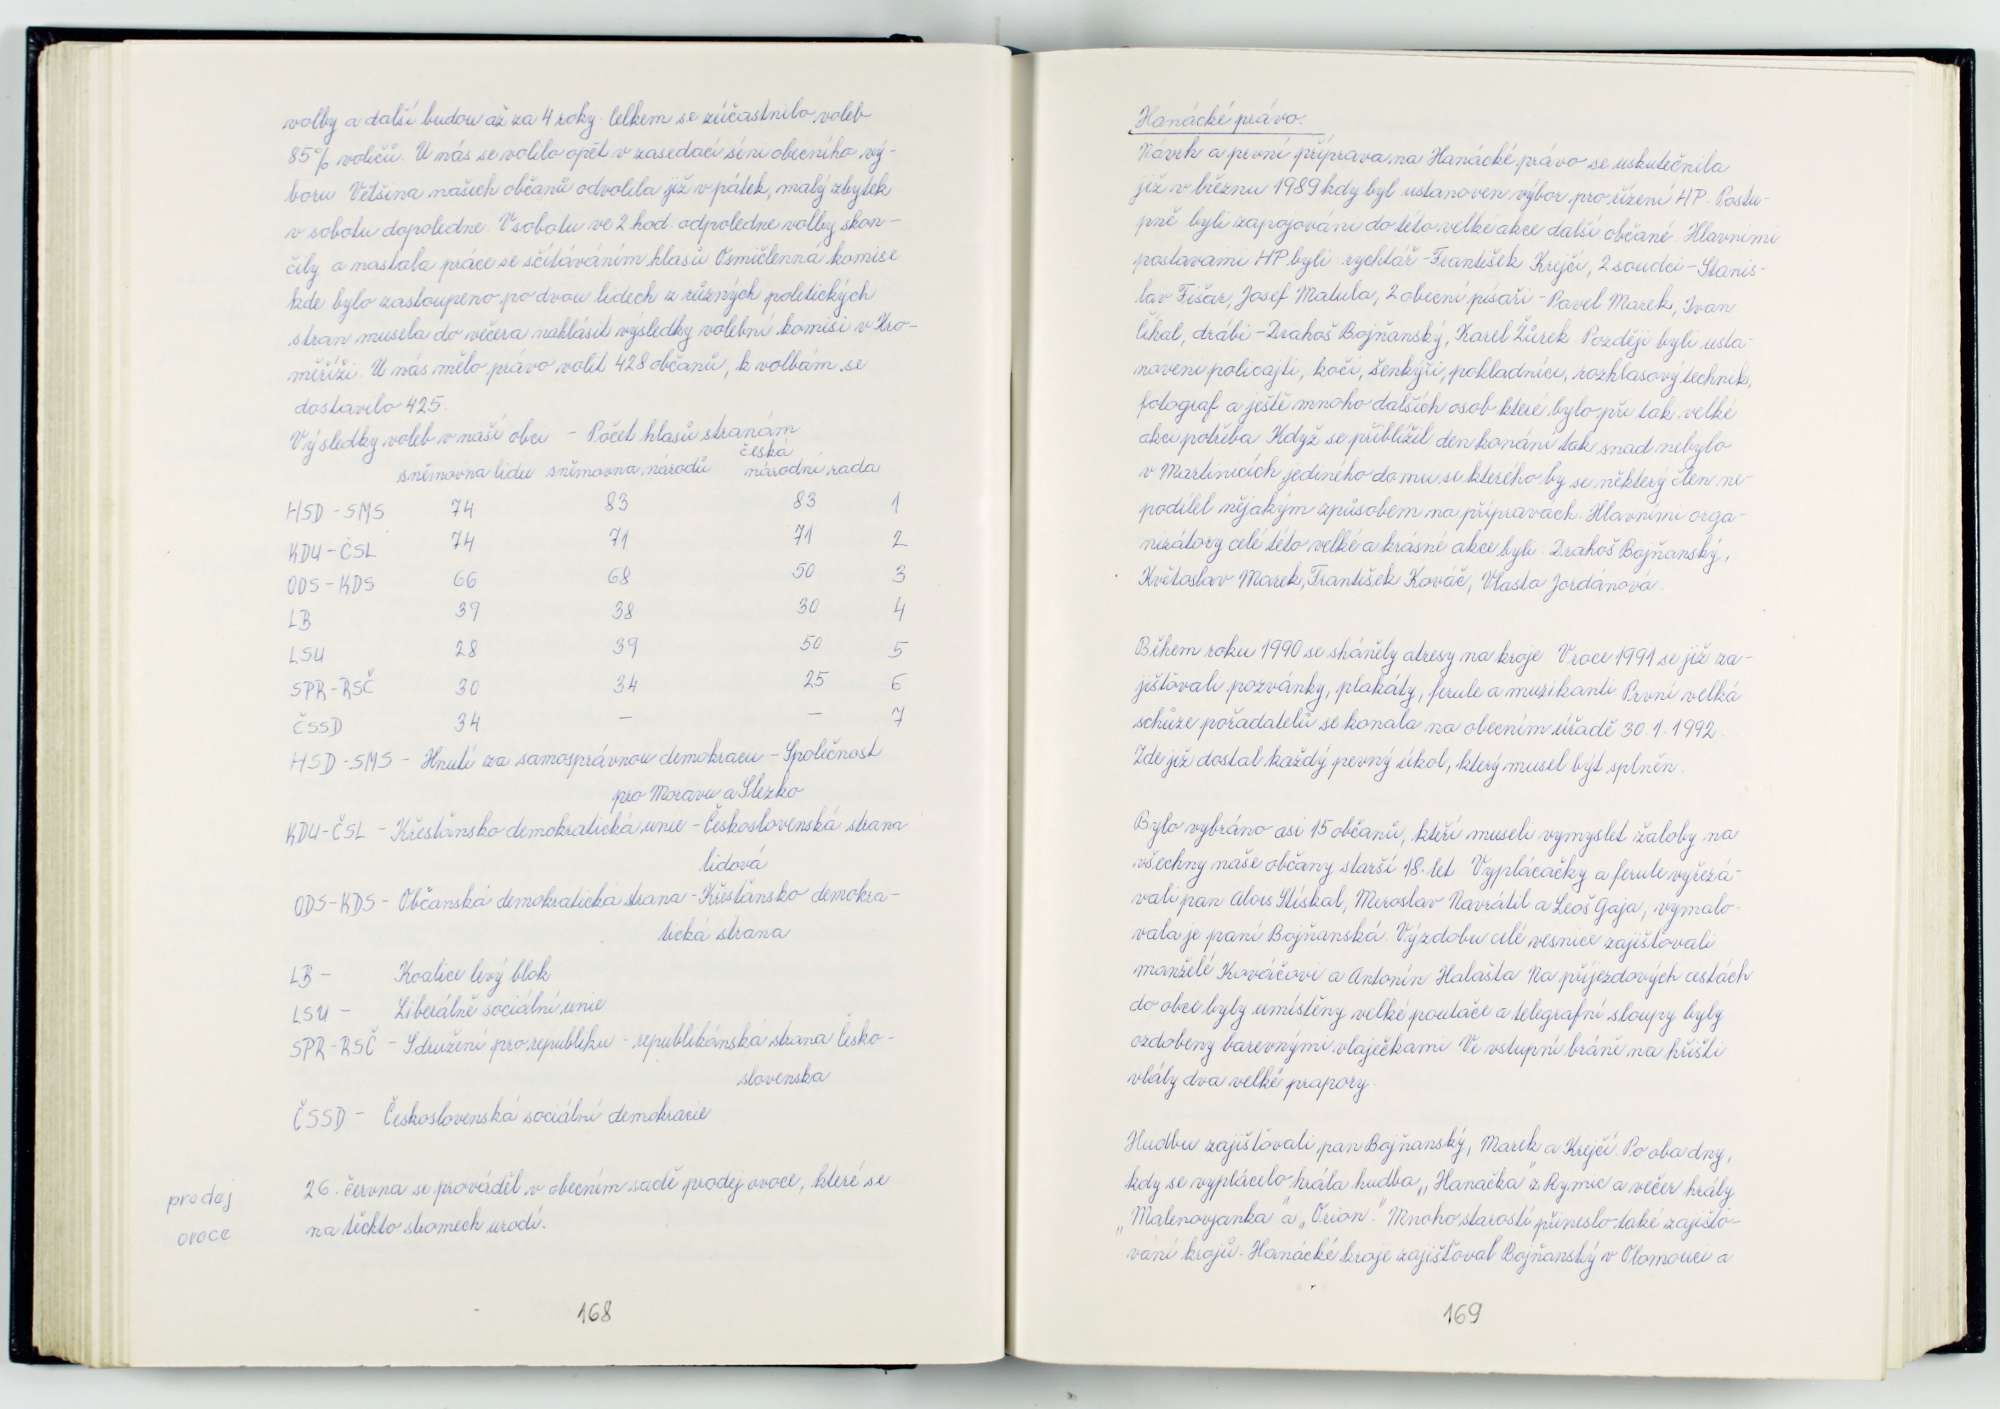 volby a další budou až za 4 roky. Celkem se zúčastnilo voleb
85% voličů. U nás se volilo opět v zasedací síni obecního vý-
boru. Většina našich občanů odvolila již v pátek, malý zbytek
v sobotu dopoledne. V sobotu ve 2 hod. odpoledne volby skon-
čily a nastala práce se sčítáváním hlasů. Osmičlenná komise
kde bylo zastoupeno po dvou lidech z různých politických
stran musela do večera nahlásit výsledky volební komisi v Kro-
měříži. U nás mělo právo volit 428 občanů, k volbám se
dostavilo 425.
Výsledky voleb v naší obci - Počet hlasů stranám
česká
sněmovna lidu sněmovna národů národní rada
HSD-SMS 74 83 83 1
KDU-ČSL 74 71 71 2
ODS-KDS 66 68 50 3
LB 39 38 30 4
LSU 28 39 50 5
SPR-RSČ 30 34 25 6
ČSSD 34 - - 7
HSD-SMS - Hnutí za samosprávnou demokracii - Společnost
pro Moravu a Slezko
KDU-ČSL - Křesťansko demokratická unie - Československá strana
lidová
ODS-KDS - Občanská demokratická strana - Křesťansko demokra-
tická strana
LB - Koalice levý blok
LSU - Liberálně sociální unie
SPR-RSČ - Sdružení pro republiku - republikánská strana Česko-
slovenska
ČSSD - Československá sociální demokracie
prodej
ovoce
26. června se prováděl v obecním sadě prodej ovoce, které se
na těchto stromech urodí.
168
Hanácké právo.
Návrh a první příprava na Hanácké právo se uskutečnila
již v březnu 1989 kdy byl ustanoven výbor pro řízení HP. Postu-
pně byli zapojováni do této velké akce další občané. Hlavnimi
postavami HP byli: rychtář - František Krejčí, 2 soudci - Stanis-
lav Fišar, Josef Matula, 2 obecní písaři - Pavel Marek, Ivan
Číhal, drábi - Drahoš Bojňanský, Karel Žůrek. Později byli usta-
noveni policajti, kočí, šenkýři, pokladníci, rozhlasový technik,
fotograf a ještě mnoho dalších osob které bylo při tak velké
akci potřeba. Když se přiblížil den konání tak snad nebylo
v Martinicích jediného domu ze kterého by se některý člen ne-
podílel nějakým způsobem na přípravách. Hlavními orga-
nizátory celé této velké a krásné akce byli: Drahoš Bojňanský,
Květoslav Marek, František Kováč, Vlasta Jordánova.
Během roku 1990 se sháněly adresy na kroje. V roce 1991 se již za-
jišťovali pozvánky, plakáty, ferule a muzikanti. První velká
schůze pořadatelů se konala na obecním úřadě 30.1.1992.
Zde již dostal každý pevný úkol, který musel být splněn.
Bylo vybráno asi 15 občanů, kteří museli vymyslet žaloby na
všechny naše občany starší 18. let. Vyplácačky a ferule vyřezá-
vali pan Alois Stískal, Miroslav Navrátil a Leoš Gaja, vymalo-
vala je paní Bojňanská. Výzdobu celé vesnice zajišťovali
manželé Kováčovi a Antonín Halašta. Na příjezdových cestách
do obce byly umístěny velké poutače a telegrafní sloupy byly
ozdobeny barevnými vlaječkami. Ve vstupní bráně na hřišti
vlály dva velké prapory.
Hudbu zajišťovali pan Bojňanský, Marek a Krejčí. Po oba dny,
kdy se vyplácelo hrála hudba „Hanačka" z Rymic a večer hrály
„Malenovjanka" a „Orion." Mnoho starostí přineslo také zajišťo-
vání krojů. Hanácké kroje zajišťoval Bojňanský v Olomouci a
169